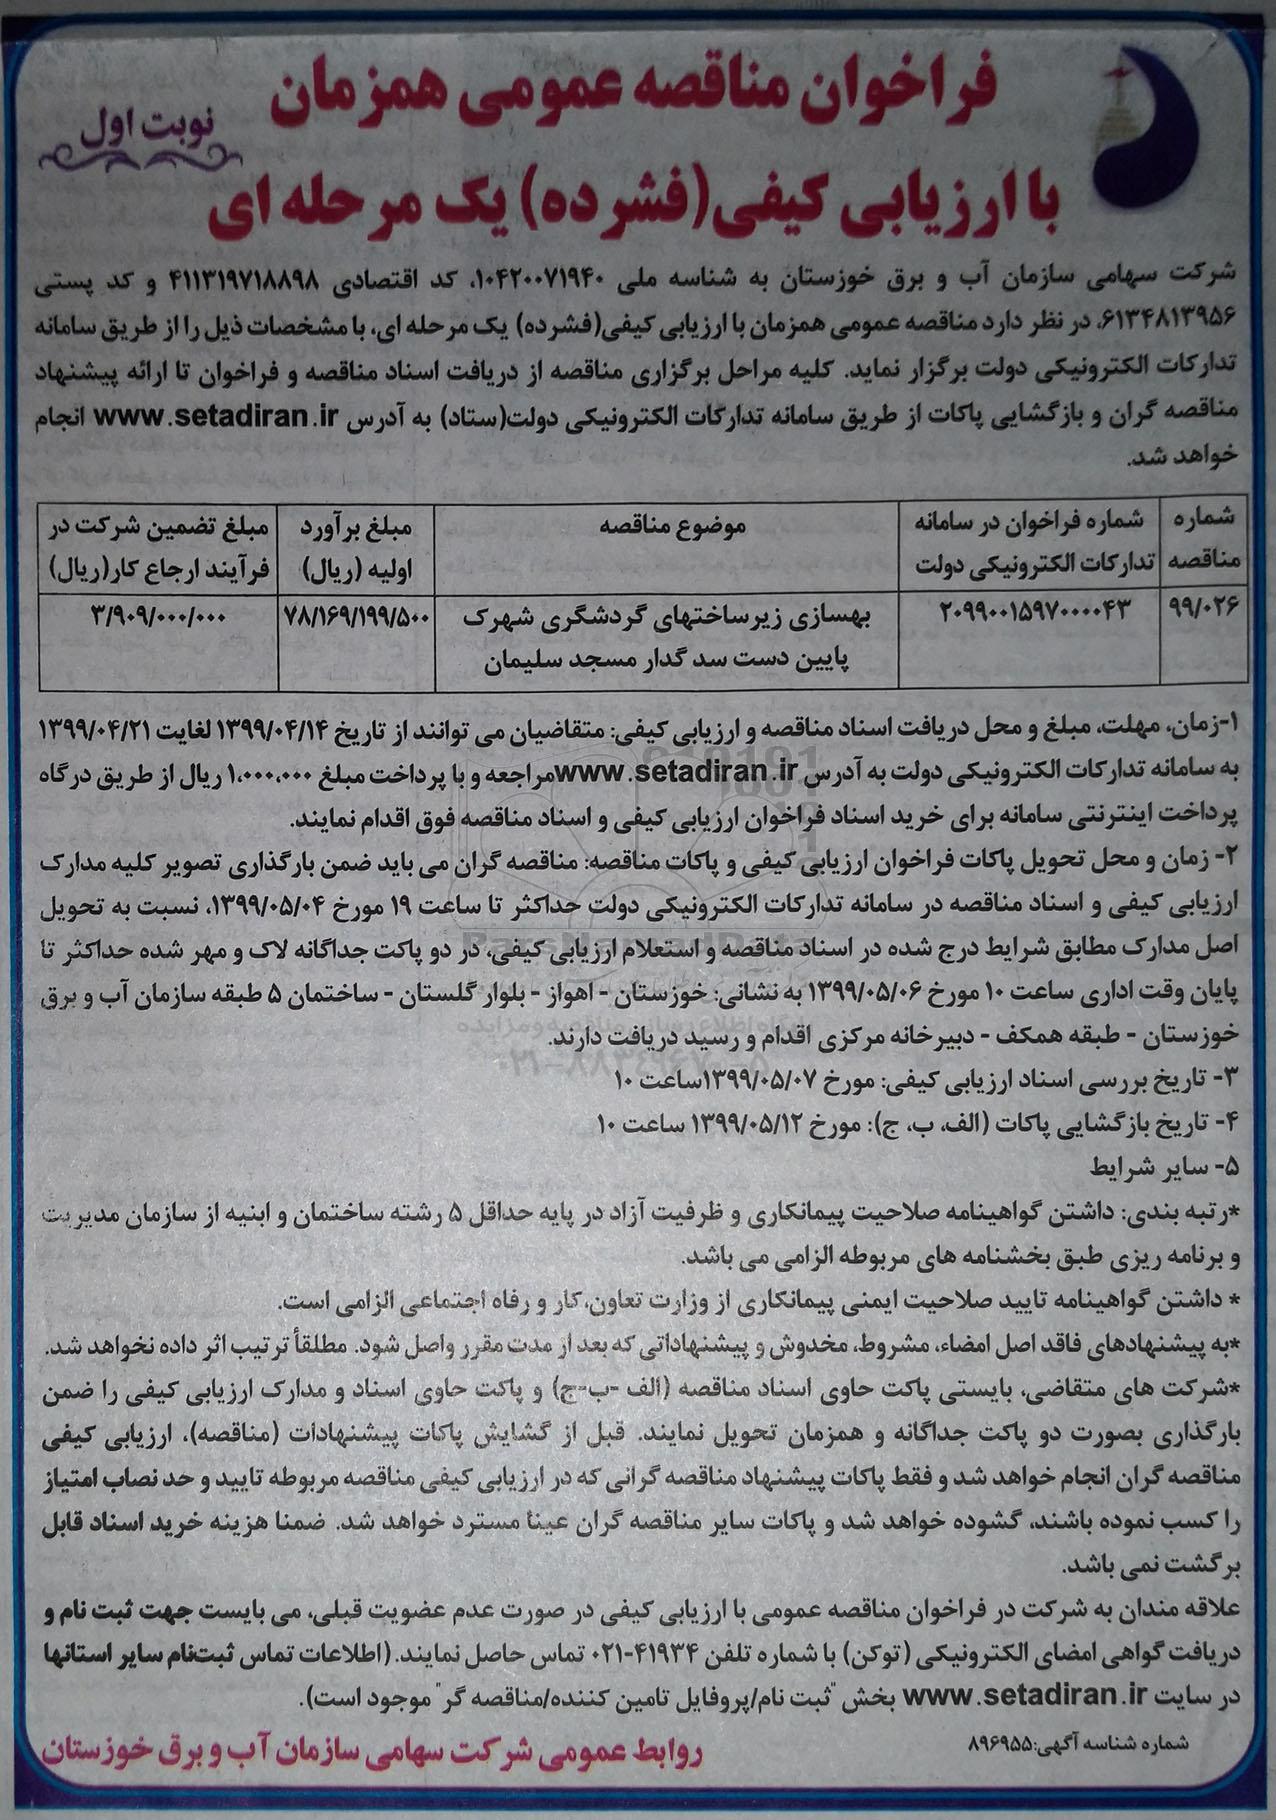 فراخوان مناقصه عمومی همزمان
نوبت اول
با ارزیابی کیفی(فشرده) یک مرحله ای
شرکت سهامی سازمان آب و برق خوزستان به شناسه ملی ۱۰۴۲۰۰۷۱۹۴۰، کد اقتصادی ۴۱۱۳۱۹۷۱۸۸۹۸ و کد پستی
۶۱۳۴۸۱۳۹۵۶، در نظر دارد مناقصه عمومی همزمان با ارزیابی کیفی(فشرده) یک مرحله ای، با مشخصات ذیل را از طریق سامانه
تدارکات الکترونیکی دولت برگزار نماید. کلیه مراحل برگزاری مناقصه از دریافت اسناد مناقصه و فراخوان تا ارائه پیشنهاد
مناقصه گران و بازگشایی پاکات از طریق سامانه تدارکات الکترونیکی دولت(ستاد) به آدرس www.setadiran.ir انجام
خواهد شد.
شماره مناقصه | شماره فراخوان در سامانه تدارکات الکترونیکی دولت | موضوع مناقصه | مبلغ برآورد اولیه (ریال) | مبلغ تضمین شرکت در فرآیند ارجاع کار(ریال)
۹۹/۰۲۶ | ۲۰۹۹۰۰۱۵۹۷۰۰۰۰۴۳ | بهسازی زیرساختهای گردشگری شهرک پایین دست سد گدار مسجد سلیمان | ۷۸/۱۶۹/۱۹۹/۵۰۰ | ۳/۹۰۹/۰۰۰/۰۰۰
۱-زمان، مهلت، مبلغ و محل دریافت اسناد مناقصه و ارزیابی کیفی: متقاضیان می توانند از تاریخ ۱۳۹۹/۰۴/۱۴ لغایت ۱۳۹۹/۰۴/۲۱
به سامانه تدارکات الکترونیکی دولت به آدرس www.setadiran.irمراجعه و با پرداخت مبلغ ۱،۰۰۰،۰۰۰ ریال از طریق درگاه
پرداخت اینترنتی سامانه برای خرید اسناد فراخوان ارزیابی کیفی و اسناد مناقصه فوق اقدام نمایند.
۲- زمان و محل تحویل پاکات فراخوان ارزیابی کیفی و پاکات مناقصه: مناقصه گران می باید ضمن بارگذاری تصویر کلیه مدارک
ارزیابی کیفی و اسناد مناقصه در سامانه تدارکات الکترونیکی دولت حداکثر تا ساعت ۱۹ مورخ ۱۳۹۹/۰۵/۰۴، نسبت به تحویل
اصل مدارک مطابق شرایط درج شده در اسناد مناقصه و استعلام ارزیابی کیفی، در دو پاکت جداگانه لاک و مهر شده حداکثر تا
پایان وقت اداری ساعت ۱۰ مورخ ۱۳۹۹/۰۵/۰۶ به نشانی: خوزستان - اهواز - بلوار گلستان - ساختمان ۵ طبقه سازمان آب و برق
خوزستان - طبقه همکف - دبیرخانه مرکزی اقدام و رسید دریافت دارند.
۳- تاریخ بررسی اسناد ارزیابی کیفی: مورخ ۱۳۹۹/۰۵/۰۷ساعت ۱۰
۴- تاریخ بازگشایی پاکات (الف، ب، ج): مورخ ۱۳۹۹/۰۵/۱۲ ساعت ۱۰
۵- سایر شرایط
*رتبه بندی: داشتن گواهینامه صلاحیت پیمانکاری و ظرفیت آزاد در پایه حداقل ۵ رشته ساختمان و ابنیه از سازمان مدیریت
و برنامه ریزی طبق بخشنامه های مربوطه الزامی می باشد.
* داشتن گواهینامه تایید صلاحیت ایمنی پیمانکاری از وزارت تعاون،کار و رفاه اجتماعی الزامی است.
*به پیشنهادهای فاقد اصل امضاء، مشروط، مخدوش و پیشنهاداتی که بعد از مدت مقرر واصل شود. مطلقاً ترتیب اثر داده نخواهد شد.
*شرکت های متقاضی، بایستی پاکت حاوی اسناد مناقصه (الف -ب-ج) و پاکت حاوی اسناد و مدارک ارزیابی کیفی را ضمن
بارگذاری بصورت دو پاکت جداگانه و همزمان تحویل نمایند. قبل از گشایش پاکات پیشنهادات (مناقصه)، ارزیابی کیفی
مناقصه گران انجام خواهد شد و فقط پاکات پیشنهاد مناقصه گرانی که در ارزیابی کیفی مناقصه مربوطه تایید و حد نصاب امتیاز
را کسب نموده باشند، گشوده خواهد شد و پاکات سایر مناقصه گران عینا مسترد خواهد شد. ضمنا هزینه خرید اسناد قابل
برگشت نمی باشد.
علاقه مندان به شرکت در فراخوان مناقصه عمومی با ارزیابی کیفی در صورت عدم عضویت قبلی، می بایست جهت ثبت نام و
دریافت گواهی امضای الکترونیکی (توکن) با شماره تلفن ۴۱۹۳۴-۰۲۱ تماس حاصل نمایند. (اطلاعات تماس ثبت‌نام سایر استانها
در سایت www.setadiran.ir بخش "ثبت نام/پروفایل تامین کننده/مناقصه گر" موجود است).
شماره شناسه آگهی:۸۹۶۹۵۵
روابط عمومی شرکت سهامی سازمان آب و برق خوزستان